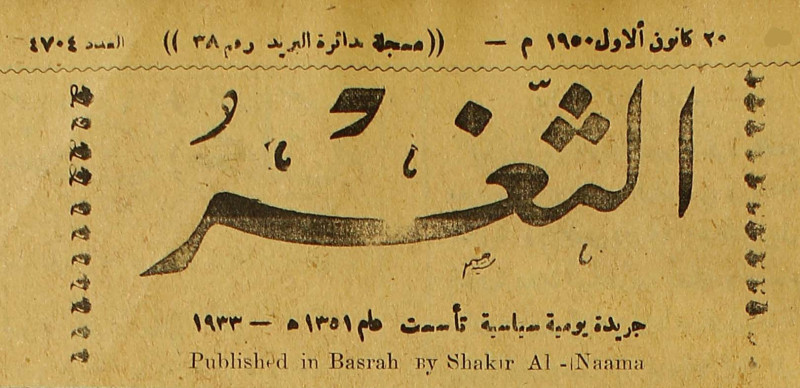 ٢٠ كانون ألاول ١٩٥٠ م — ((مسجلة بدائرة البريد رقم ٣٨)) العدد ٤٧٠٤
الثَّغْرُ
جريدة يومية سياسية تأسست عام ١٣٥١ ه — ١٩٣٣
Published in Basrah By Shakir Al - Naama